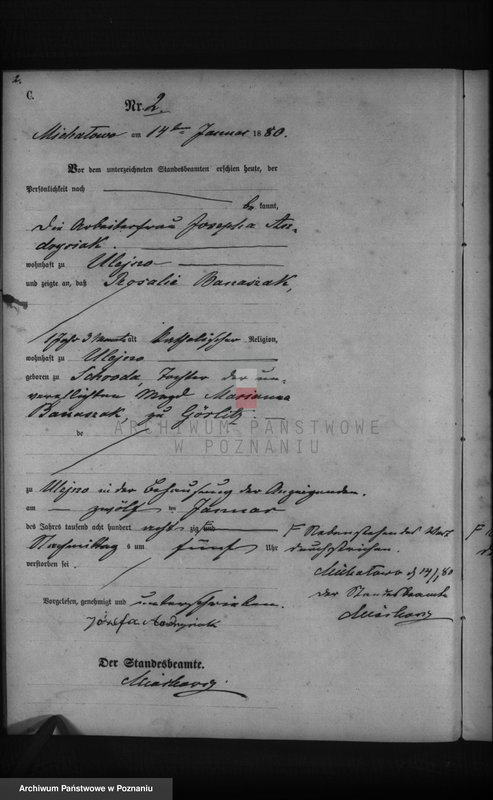 2.
C.
Nr. 2.
Michałowo am 14ten Januar 1880.
Vor dem unterzeichneten Standesbeamten erschien heute, der
Persönlichkeit nach
be kannt,
die Arbeiterfrau Josepha An-
drysiak.
wohnhaft zu Ulejno
und zeigte an, daß Rosalie Banaszak,
1 Jahr 3 Monate alt katholischer Religion,
wohnhaft zu Ulejno
geboren zu Schroda Tochter der un-
verehelichten Magd Marianna
Banaszak, zu Görlitz.
de
zu Ulejno in der Behausung der Anzeigenden.
am zwölf ten Januar
des Jahrs tausend acht hundert acht zig und
Nachmittag s um fünf Uhr
verstorben sei.
F Nebenstehendes Wort
durchstrichen.
Michałowo d 14/1 80
der Standesbeamte
Vorgelesen, genehmigt und unterschrieben.
Józefa Andrysiak
Der Standesbeamte.
ARCHIWUM PAŃSTWOWE
W POZNANIU
Archiwum Państwowe w Poznaniu